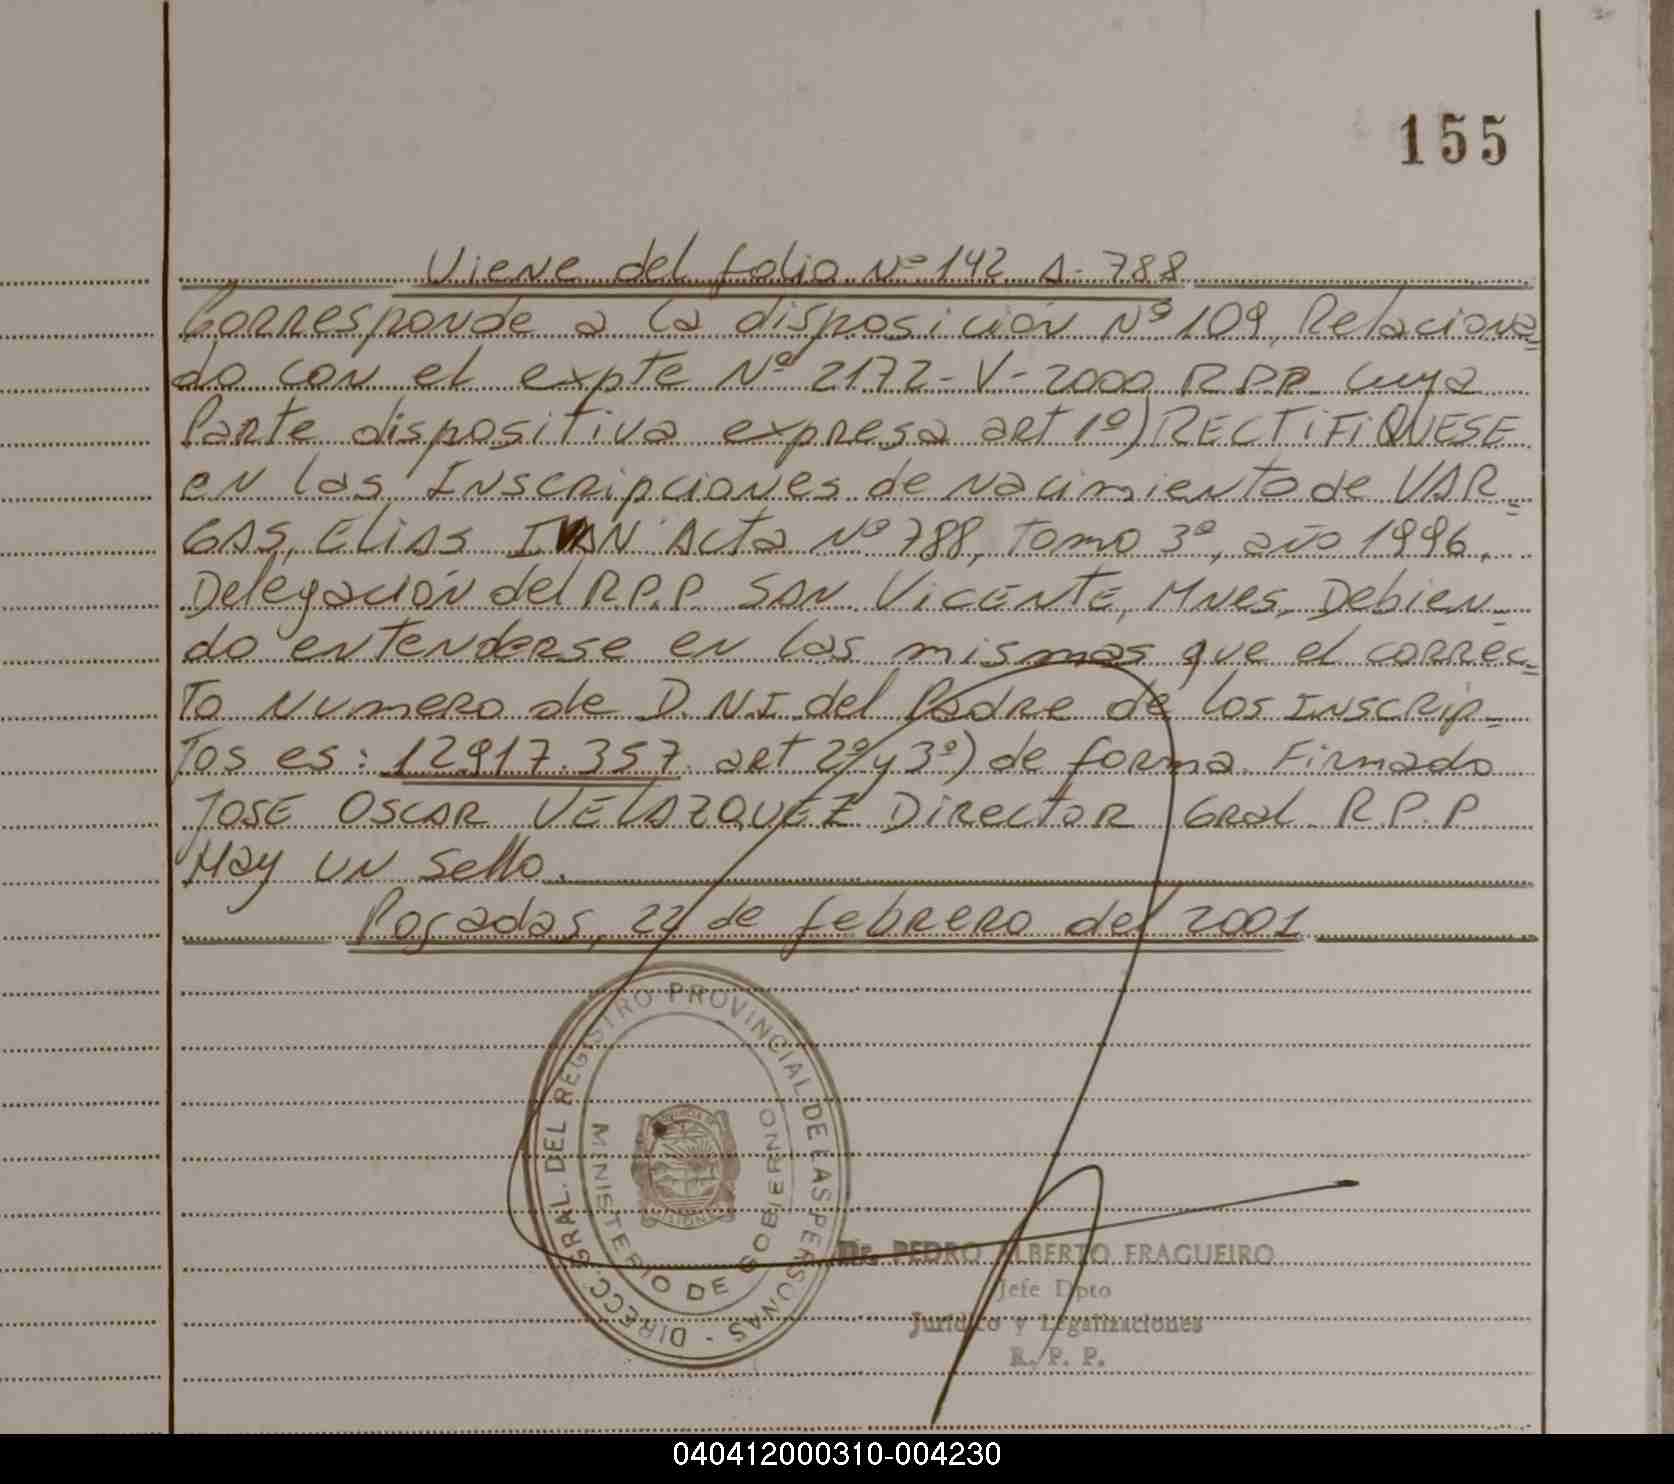 155
Viene del folio Nº 142 A-788
Corresponde a la disposición Nº 109, Relaciona
do con el expte Nº 2172-V-2000 RPP. cuya
Parte dispositiva expresa art 1º) RECTIFIQUESE
en las Inscripciones de nacimiento de VAR=
GAS, Elias IVAN Acta Nº 788, Tomo 3º, año 1996,
Delegación del R.P.P. SAN VICENTE, Mnes, Debien-
do entenderse en las mismas que el correc=
To Numero de D.N.I. del Padre de los Inscrip=
Tos es: 12917.357. art 2º y 3º) de forma. Firmado
JOSE OSCAR VELAZQUEZ Director Gral. R.P.P.
Hay un sello.
Posadas, 22 de febrero del 2001
DIRECC. GRAL. DEL REGISTRO PROVINCIAL DE LAS PERSONAS -
MINISTERIO DE GOBIERNO
PROVINCIA DE
MISIONES
Dr. PEDRO ALBERTO FRAGUEIRO
Jefe Dpto
Jurídico y Legalizaciones
R. P. P.
040412000310-004230